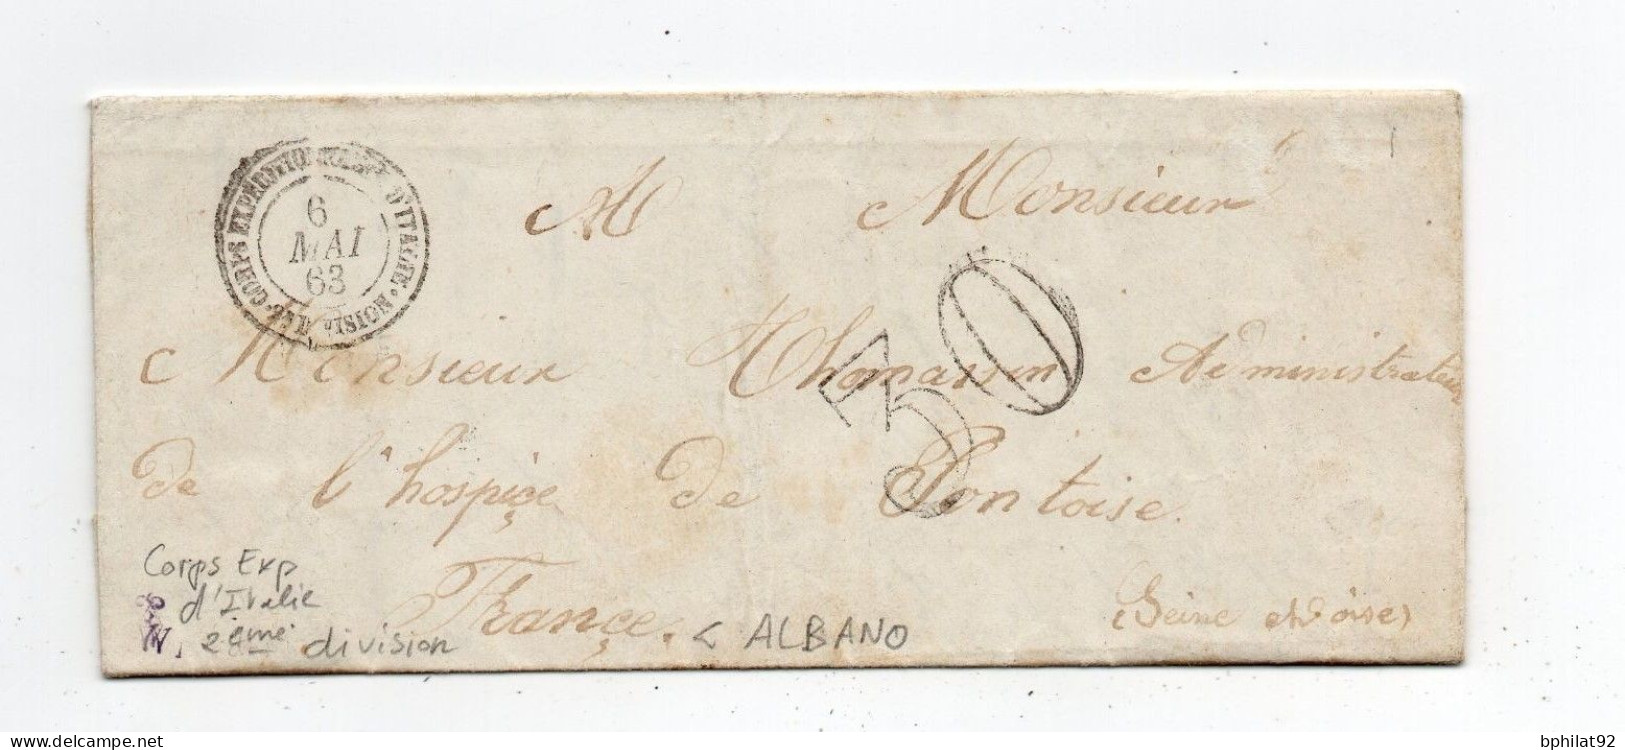 CORPS EXPEDITIONNAIRE D'ITALIE
2E DIVISION
6
MAI
63
A Monsieur
30
Monsieur Thomassin Administrateur
de l'hospiçe de Pontoise.
Françe.
(Seine et Oise)
Corps Exp
d'Italie
2ème division
< ALBANO
www.delcampe.net
bphilat92